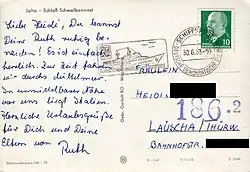 Jalta - Schloß Schwalbennest
Liebe Heidi, Du kannst
Deine Ruth ruhig be-
neiden! Es ist einfach
herrlich. Zur Zeit fahren
wir durchs Mittelmeer.
In unmittelbarer Nähe
vor uns liegt Italien.
Herzliche Urlaubsgrüße
für Dich und Deine
Eltern von
Ruth
10
FRÄULEIN
HEIDI
186.2
LAUSCHA/THÜRW.
BAHNHOFSTR.